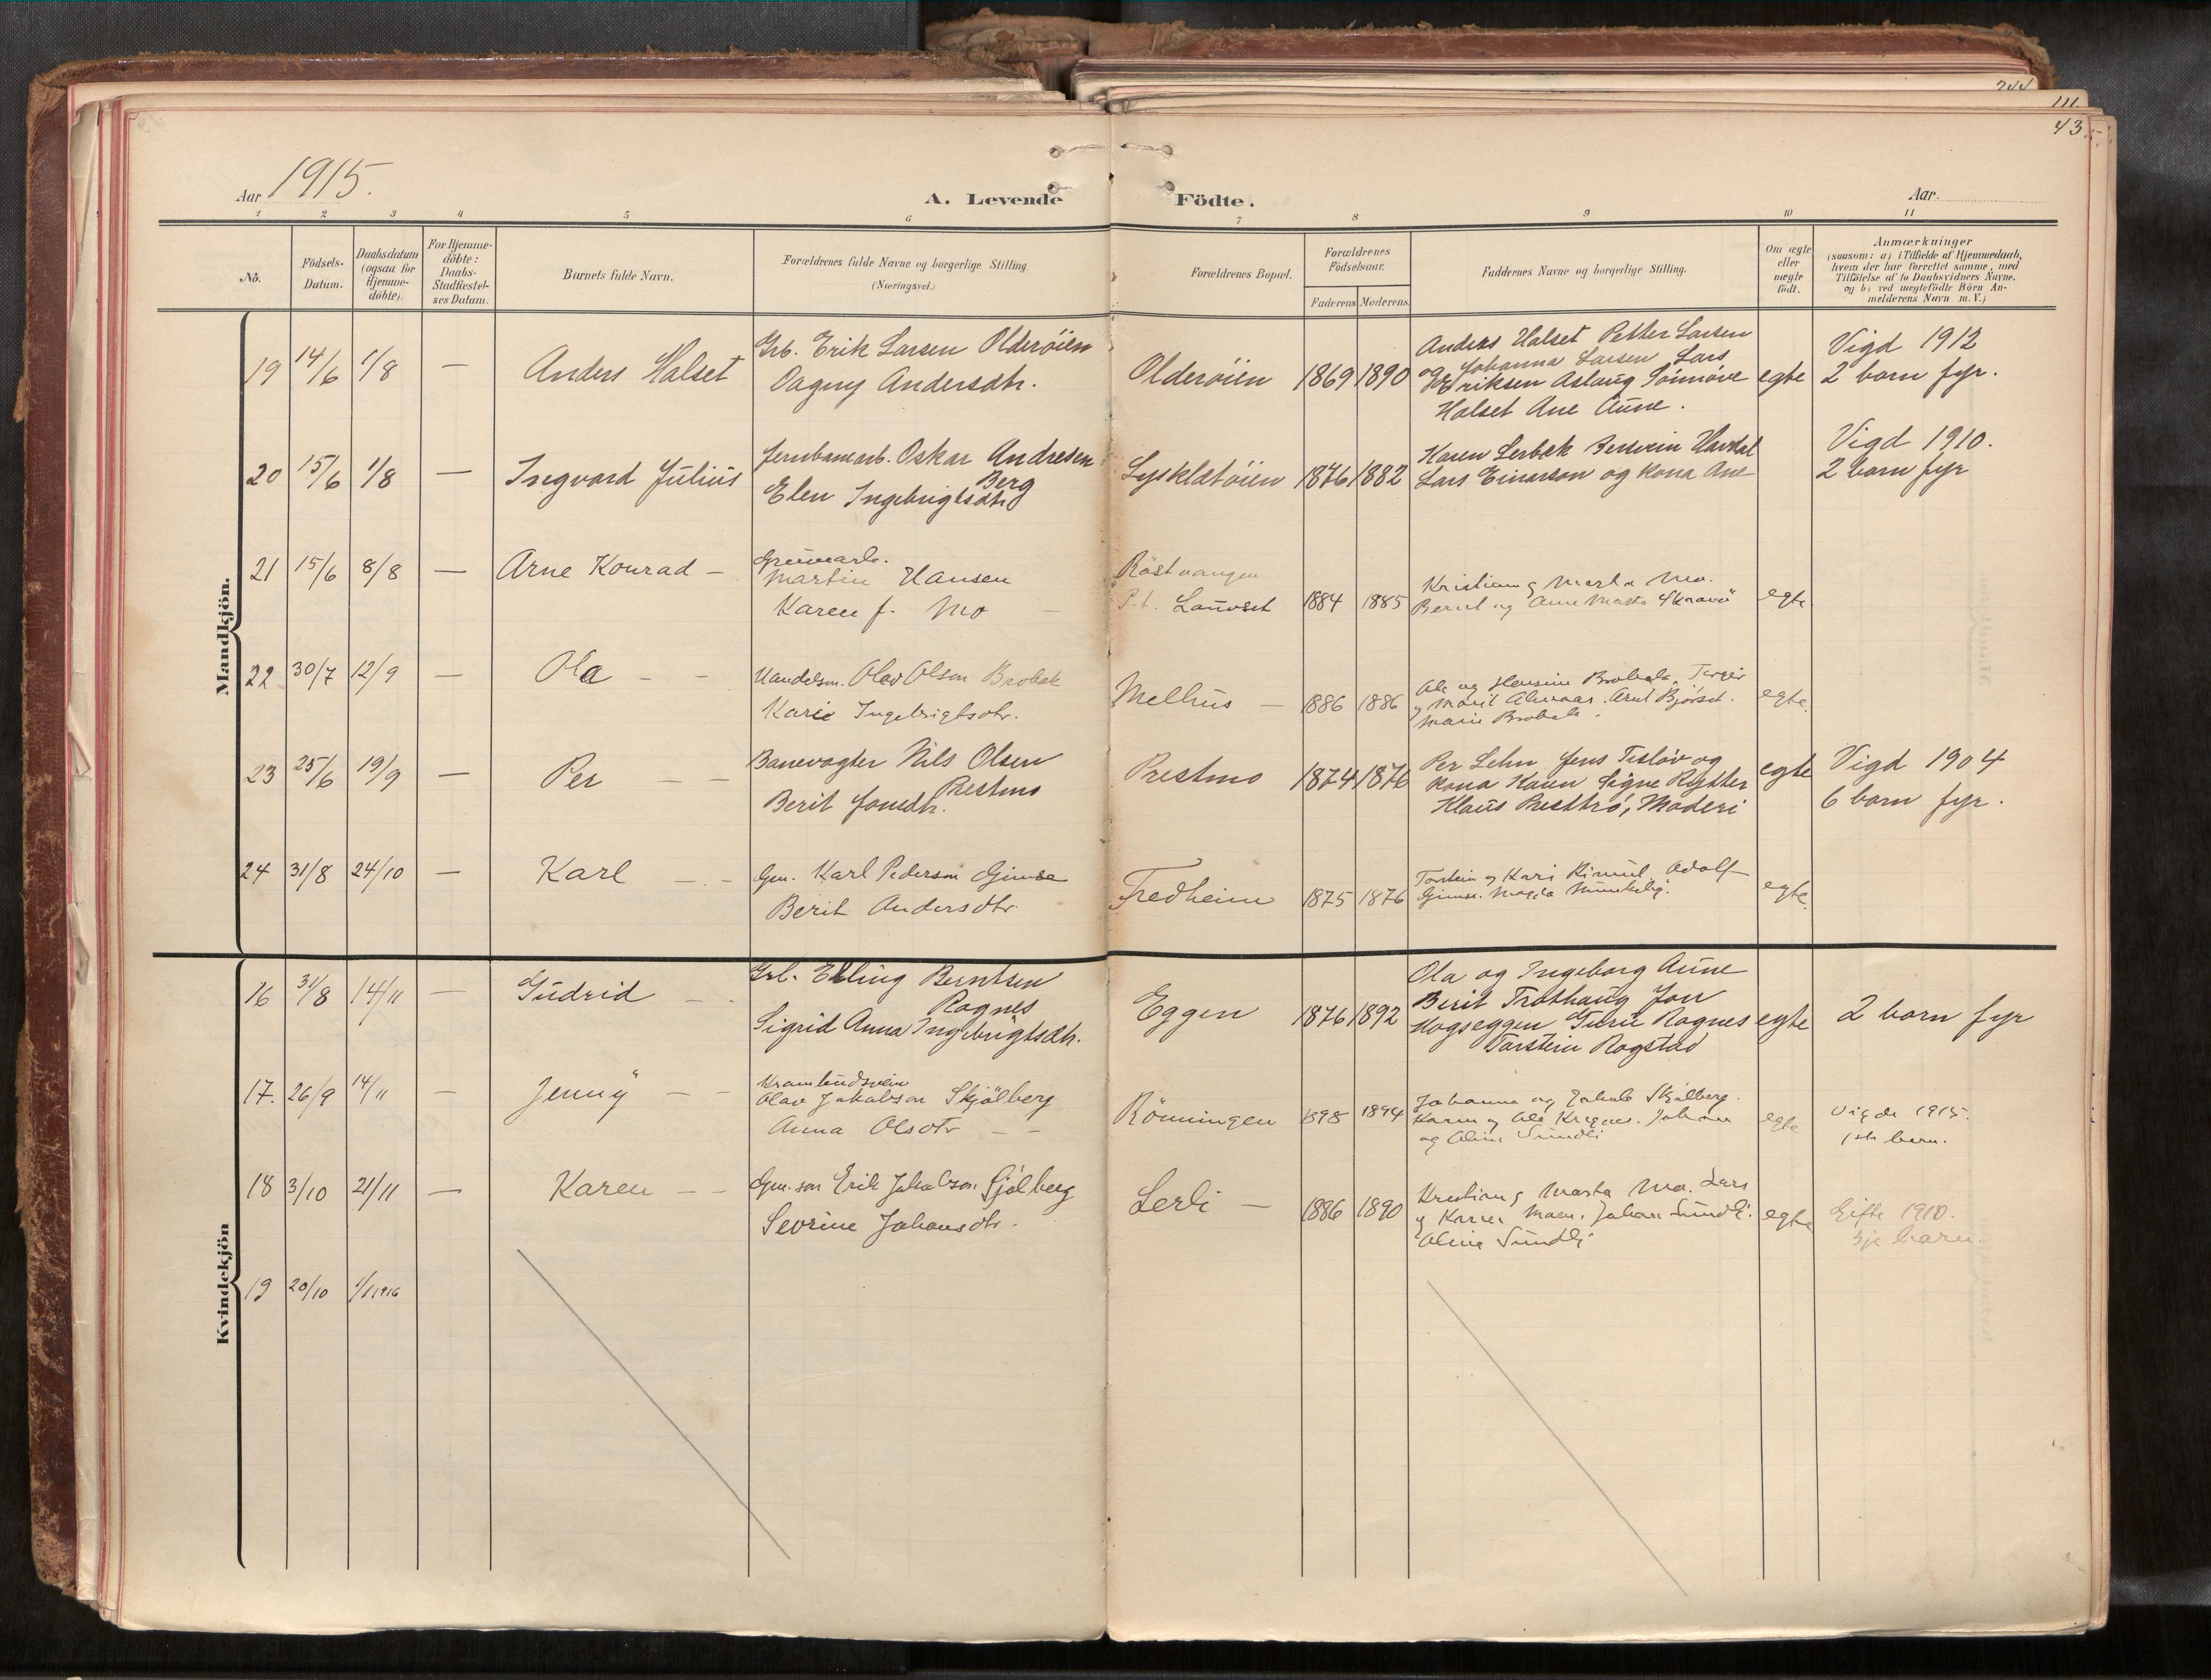 111.
43.
Aar 1915.
A. Levende Födte.
Aar
1 2 3 4 5 6 7 8 9 10 11
No.
Födsels-Datum.
Daabsdatum (ogsaa for Hjemmedöbte).
For Hjemmedöbte: Daabs-Stadfæstelses Datum.
Barnets fulde Navn.
Forældrenes fulde Navne og borgerlige Stilling (Næringsvei.)
Forældrenes Bopæl.
Forældrenes Födselsaar.
Faderens Moderens.
Faddernes Navne og borgerlige Stilling.
Om ægte eller uægte födt.
Anmærkninger
(saasom: a) i Tilfælde af Hjemmedaab, hvem der har forrettet samme, med Tilföielse af to Daabsvidners Navne. og b) ved uægtefödte Börn Anmelderens Navn m. V.)
Mandkjön.
19 14/6 1/8 — Anders Halset
Grb. Erik Larsen Olderöien
Dagny Andersdtr.
Olderöien 1869 1890
Anders Halset Petter Larsen
og Johanna Larsen Lars
Eriksen Aslaug Sönnöve
Halset Ane Aune.
egte
Vigd 1912
2 born fyr.
20 15/6 1/8 — Ingvard Julius
Jernbanearb. Oskar Andresen
Berg
Elen Ingebrigtsdtr
Lyskletöien 1876 1882
Karen Lerbek Havdal
Lars Einarson og kona Ane
Vigd 1910.
2 born fyr
21 15/6 8/8 — Arne Konrad —
Gruvearb.
Martin Hansen
Karen f. Mo —
Röstvangen
P.t. Lauvset 1884 1885
Kristian og Marta Mo.
Bernt og Anne Marta
egte.
22 30/7 12/9 — Ola — —
Handelsm. Olav Olsen Brobak
Kari Ingebrigtsdtr.
Melhus — 1886 1886
Ole og Hansine Brobak.
og Marit Arnt Bjørset.
Marie Brobak.
egte.
23 25/6 19/9 — Per — —
Banevogter Nils Olsen
Prestmo
Berit Jonsdtr.
Prestmo 1874 1876
Per Lehn Jens Teslöv og
kona Karen Signe Rytter
Klaus Presttrö, Moderi
egte
Vigd 1904
6 born fyr.
24 31/8 24/10 — Karl — . —
Gm. Karl Pederson Gimse
Berit Andersdtr.
Fredheim 1875 1876
Torstein og Kari Rimul. Adolf
Gimse. Magda
egte.
Kvindekjön
16 31/8 14/11 — Gudrid —
Grb. Elling Berntsen
Rognes
Sigrid Anna Ingebrigtsdtr.
Eggen 1876 1892
Ola og Ingeborg Aune
Berit Trothaug Jon
Hogseggen Guru Rognes
Torstein Rogstad
egte
2 born fyr
17. 26/9 14/11 — Jenny — —
Olav Jakobson Skjölberg
Anna Olsdtr — —
Rönningen 1898 1894
Johanna og Jakob Skjölberg.
Karen og Ole Johan
og Olina Sundli
egte
Vigde 1915.
1ste barn.
18 3/10 21/11 — Karen — —
Gm. son Erik Jakobson Sjölberg
Sevrine Johansdtr.
Lerli — 1886 1890
Kristian og Marta Mo. Lars
og Karen Moen. Johan Sundli.
Olina Sundli
egte
Gifte 1910.
3je barn.
19 20/10 1/1 1916